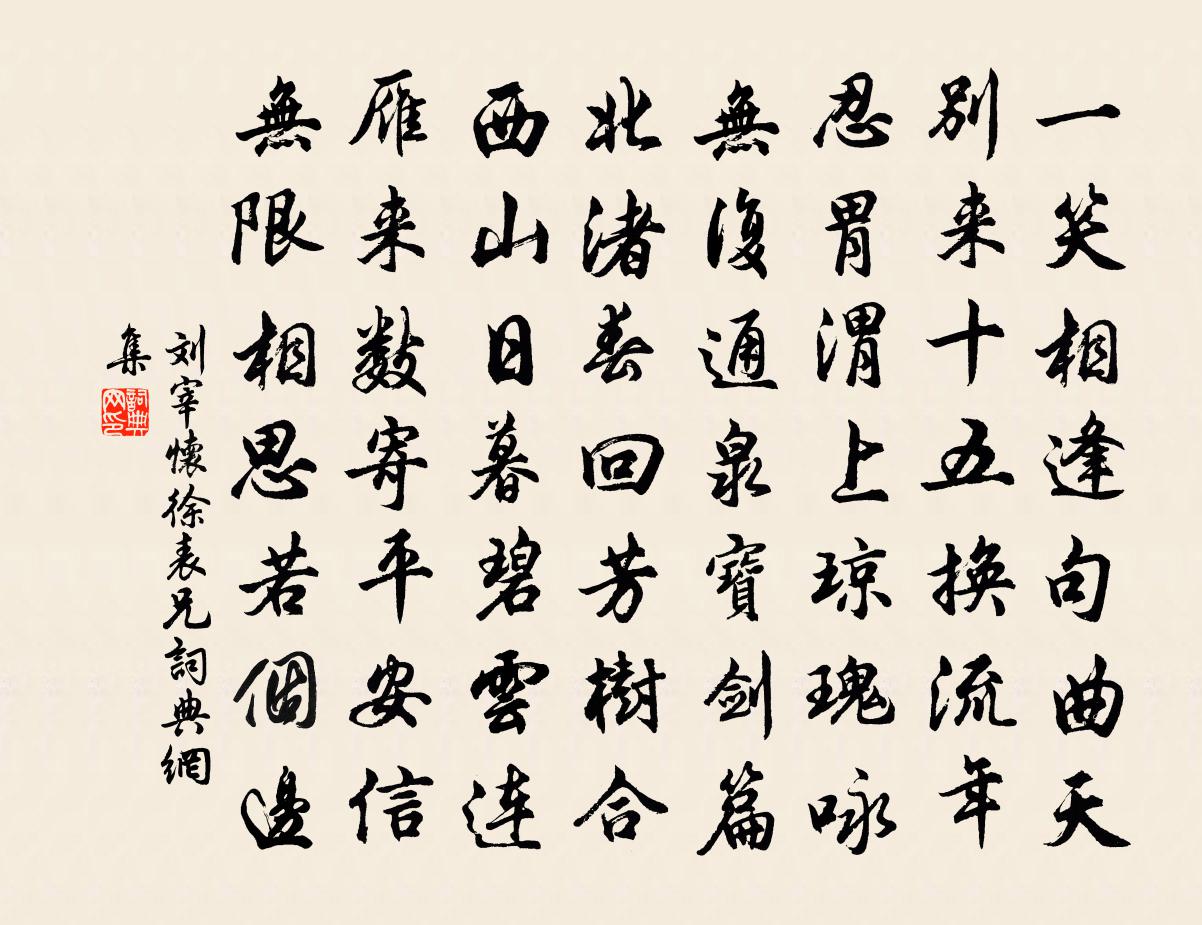 一笑相逢句曲天
別来十五換流年
忍胃渭上琼瑰咏
無復通泉寶剑篇
北渚春回芳樹合
西山日暮碧雲连
雁来数寄平安信
無限相思若個邊
刘宰懷徐表兄詞典網
集
詞典网印